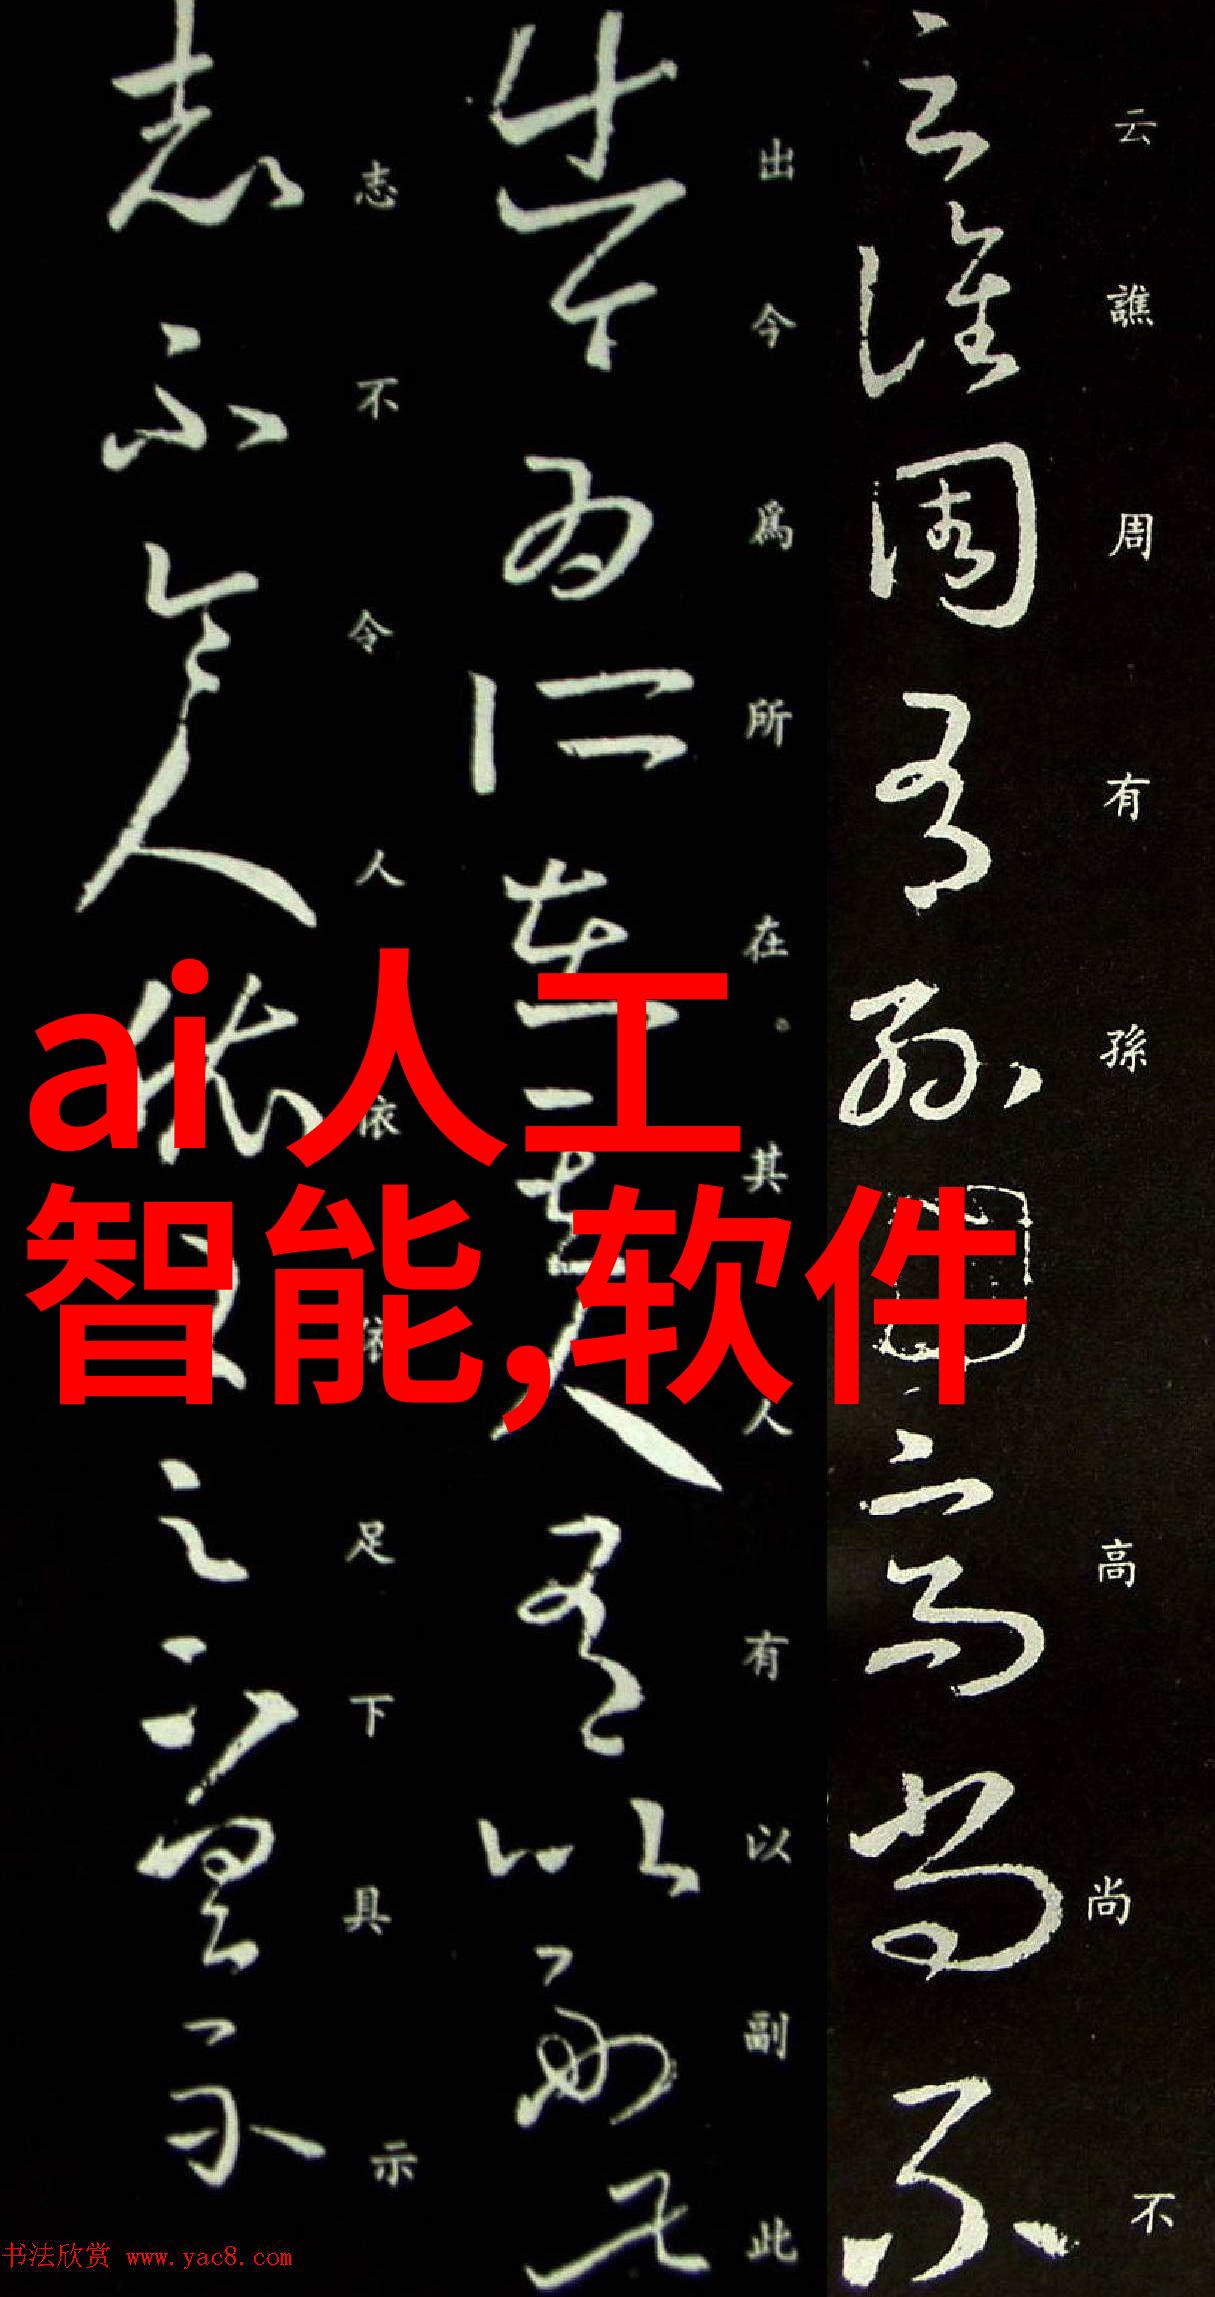 云譙周有孫高尚不
出今為所在。其人有以副此
志不令人依依足下具示
ai人工
智能,软件
书法欣赏 www.yac8.com